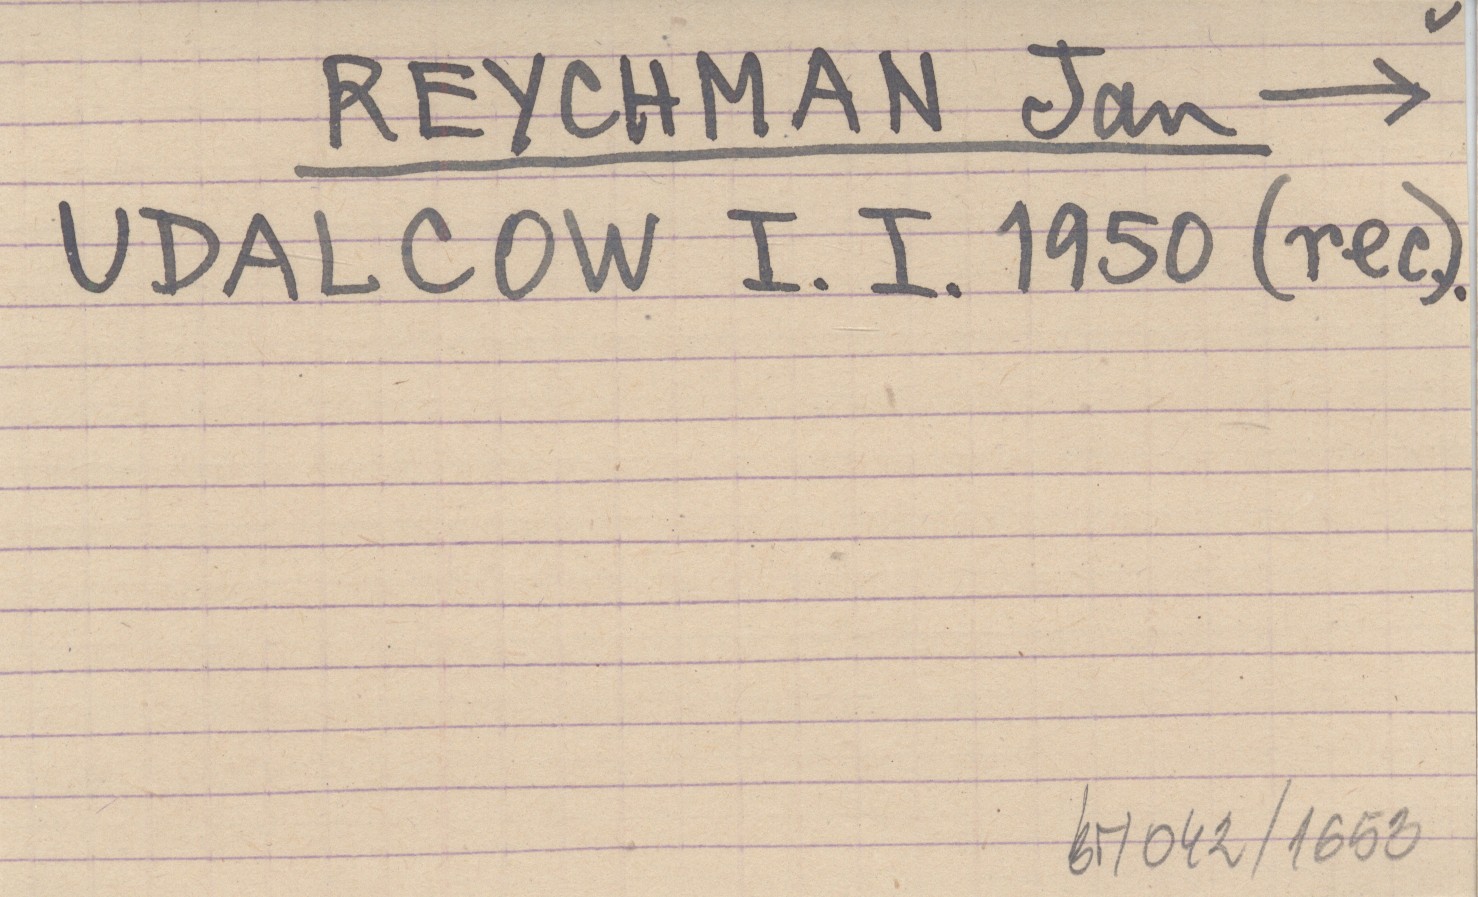 REYCHMAN Jan →
UDALCOW I. I. 1950 (rec.).
042/1653